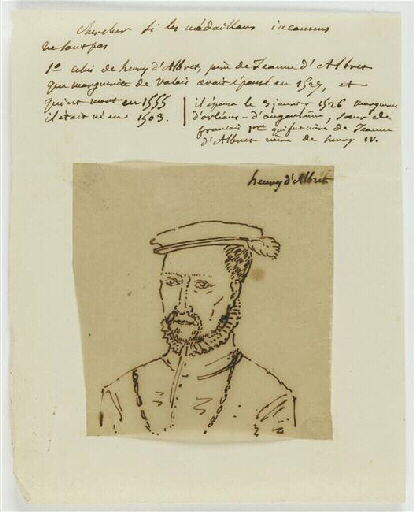 Chercher si les médaillons inconnus
ne sont pas
1º celui de henry d'Albret, père de Jeanne d'Albret
que marguerite de valois avait épousé en 1527, et
qui est mort en 1555
il était né en 1503.
il épousa le 3 janv r 1526 marguerite
d'orléans-d'angoulème, sœur de
françois 1er qui fut mère de Jeanne
d'Albret mère de henry IV.
henry d'Albret